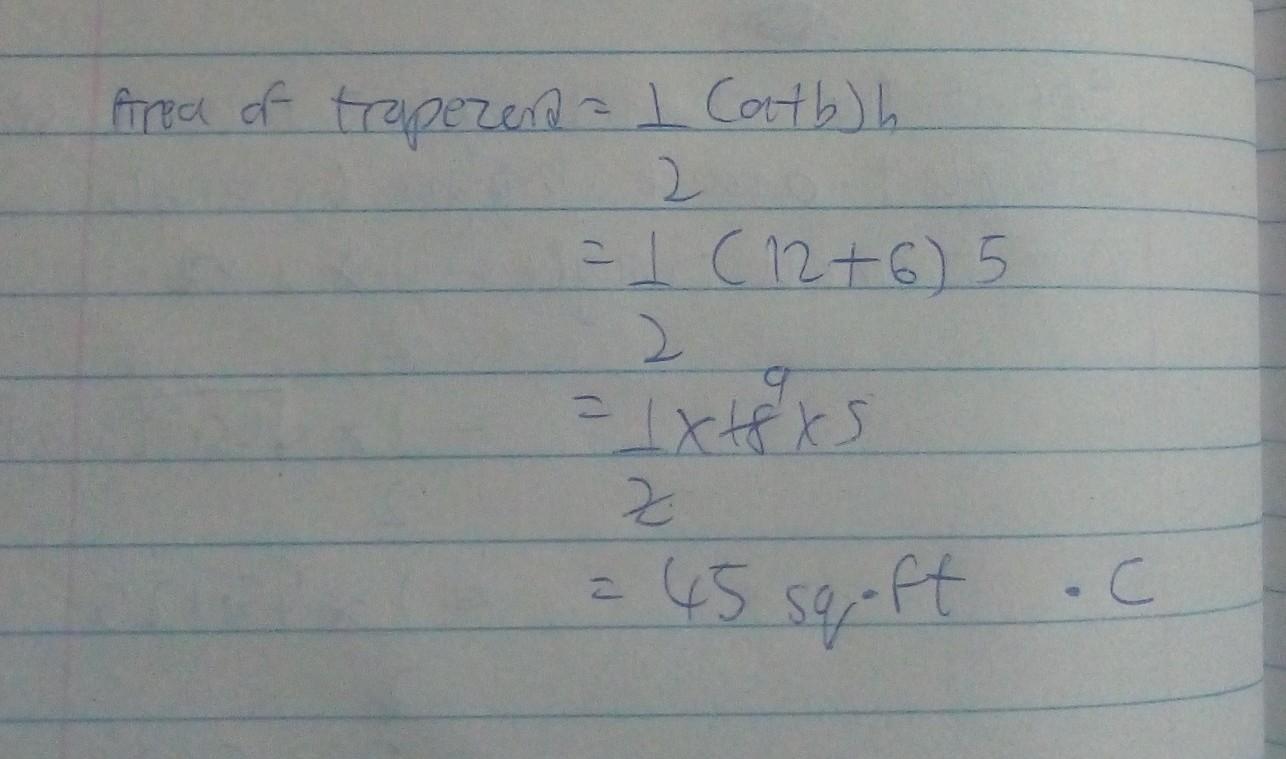 Area of trapezoid = 1 (a+b)h
2
= 1 (12+6) 5
2
9
= 1x18x5
2
= 45 sq.ft . C